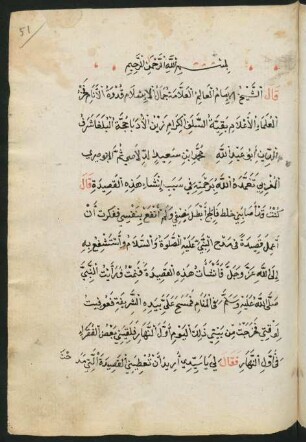 51
بسم الله الرحمن الرحيم
قال الشيخ الامام العالم العلامة الاسلام قدوة الانام فخر
العلماء الاعلام بقية السلف الكرام زين الادبا حجة البلغا شرف
الدين ابو عبد الله محمد بن سعيد الدلاصي ثم الابوصيري
المغربي تغمده الله برحمته في سبب انشاء هذه القصيدة قال
كنت قد اصابني خلط فالج ابطل نصفي ولم انتفع بنفسي ففكرت ان
اعمل قصيدة في مدح النبي عليه الصلوة والسلام واستشفع به
الى الله عز وجل فانشأت هذه القصيدة فنمت ورأيت النبي
صلى الله عليه وسلم في المنام فمسح علي بيده الشريفة فعوفيت
لوقتي فخرجت من بيتي ذلك اليوم اول النهار فلقيني بعض الفقراء
في اول النهار فقال لي يا سيدي اريد ان تعطيني القصيدة التي مدحت